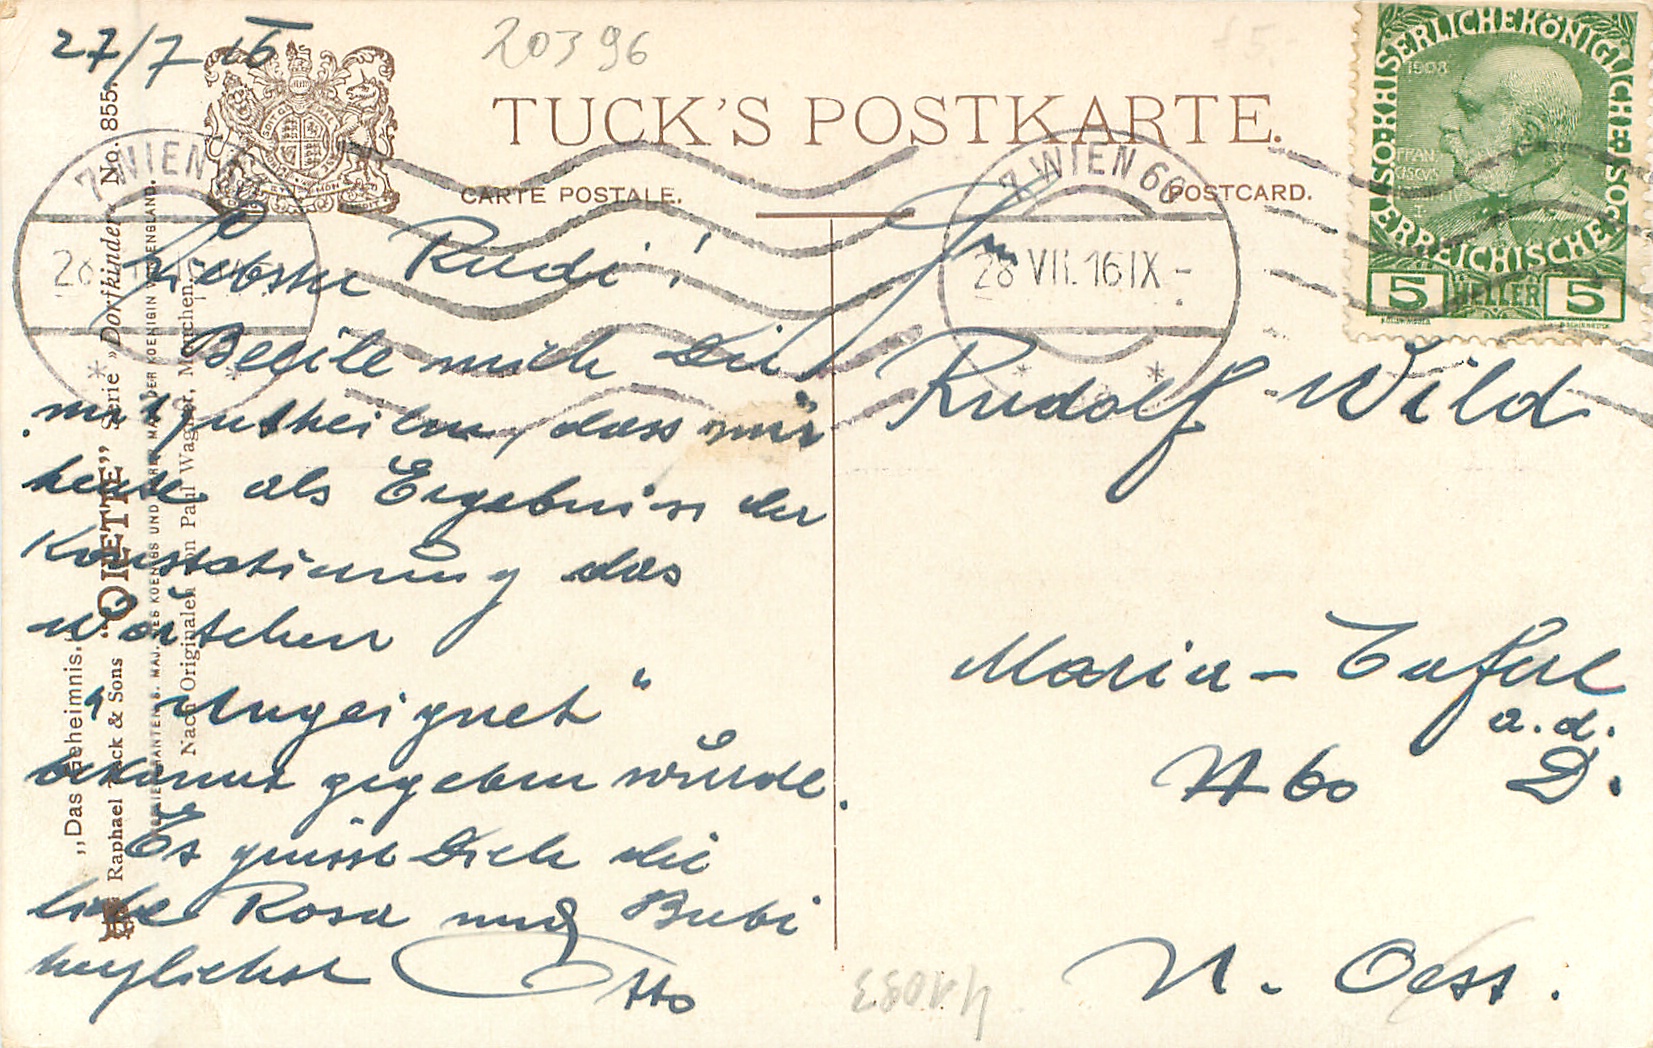 27/7 16
20396
£5.-
TUCK'S POSTKARTE.
CARTE POSTALE.
POSTCARD.
7 WIEN
7 WIEN 66
28 VII. 16 IX -
KAISERLICHE KÖNIGLICHE
ÖSTERREICHISCHE
1908
FRAN
CISCVS
I.
5 HELLER 5
Liebster Rudi!
Beeile mich Dir
mitzutheilen, dass mir
heute als Ergebniss der
Konstatierung das
Wörtchen
"Ungeignet"
bekannt gegeben wurde.
Es grüsst Dich die
liebe Rosa und Bubi
herzlichst Otto
Rudolf Wild
Maria-Taferl
a.d.
N 60 D.
N. Oest.
41083
„Das Geheimnis."
Raphael Tuck & Sons "OILETTE" Serie »Dorfkinder« No. 855.
HOFLIEFERANTEN S. MAJ. DES KOENIGS UND IHRER MAJ. DER KOENIGIN VON ENGLAND.
Nach Originalen von Paul Wagner, München.